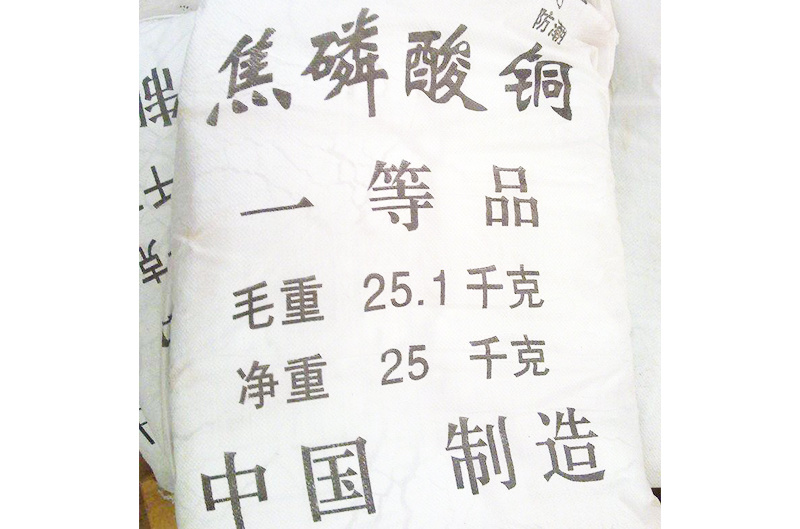 防潮
焦磷酸铜
一等品
毛重 25.1 千克
净重 25 千克
中国 制造